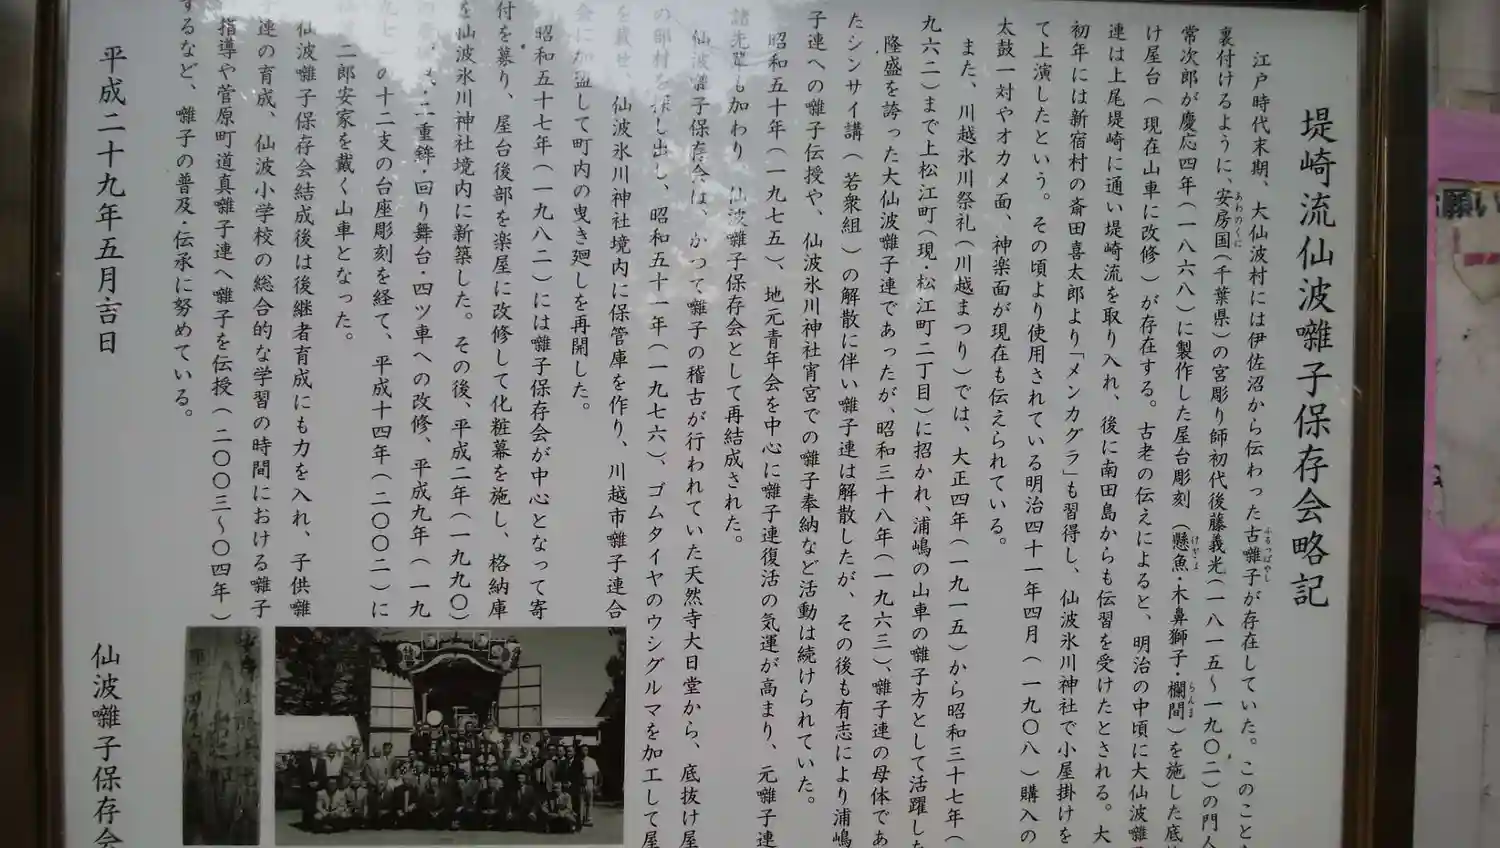 堤崎流仙波囃子保存会略記
江戸時代末期、大仙波村には伊佐沼から伝わった古囃子が存在していた。このこと
裏付けるように、安房国(千葉県)の宮彫り師初代後藤義光(一八一五〜一九〇二)の門人
常次郎が慶応四年(一八六八)に製作した屋台彫刻(懸魚・木鼻獅子・欄間)を施した底
け屋台(現在山車に改修)が存在する。古老の伝えによると、明治の中頃に大仙波囃
連は上尾堤崎に通い堤崎流を取り入れ、後に南田島からも伝習を受けたとされる。大
初年には新宿村の斎田喜太郎より「メンカグラ」も習得し、仙波氷川神社で小屋掛けを
て上演したという。その頃より使用されている明治四十一年四月(一九〇八)購入の
太鼓一対やオカメ面、神楽面が現在も伝えられている。
また、川越氷川祭礼(川越まつり)では、大正四年(一九一五)から昭和三十七年(
九六二)まで上松江町(現・松江町二丁目)に招かれ、浦嶋の山車の囃子方として活躍した
隆盛を誇った大仙波囃子連であったが、昭和三十八年(一九六三)、囃子連の母体であ
たシンサイ講(若衆組)の解散に伴い囃子連は解散したが、その後も有志により浦嶋
子連への囃子伝授や、仙波氷川神社宵宮での囃子奉納など活動は続けられていた。
昭和五十年(一九七五)、地元青年会を中心に囃子連復活の気運が高まり、元囃子連
諸先輩も加わり、仙波囃子保存会として再結成された。
仙波囃子保存会は、かつて囃子の稽古が行われていた天然寺大日堂から、底抜け屋
の部材を探し出し、昭和五十一年(一九七六)、ゴムタイヤのウシグルマを加工して屋
を載せ、仙波氷川神社境内に保管庫を作り、川越市囃子連合
会に加盟して町内の曳き廻しを再開した。
昭和五十七年(一九八二)には囃子保存会が中心となって寄
付を募り、屋台後部を楽屋に改修して化粧幕を施し、格納庫
を仙波氷川神社境内に新築した。その後、平成二年(一九九〇)
二重鉾・回り舞台・四ツ車への改修、平成九年(一九
九七)の十二支の台座彫刻を経て、平成十四年(二〇〇二)に
二郎安家を戴く山車となった。
仙波囃子保存会結成後は後継者育成にも力を入れ、子供囃
子連の育成、仙波小学校の総合的な学習の時間における囃子
指導や菅原町道真囃子連へ囃子を伝授(二〇〇三〜〇四年)
するなど、囃子の普及・伝承に努めている。
平成二十九年五月吉日
仙波囃子保存会
願い